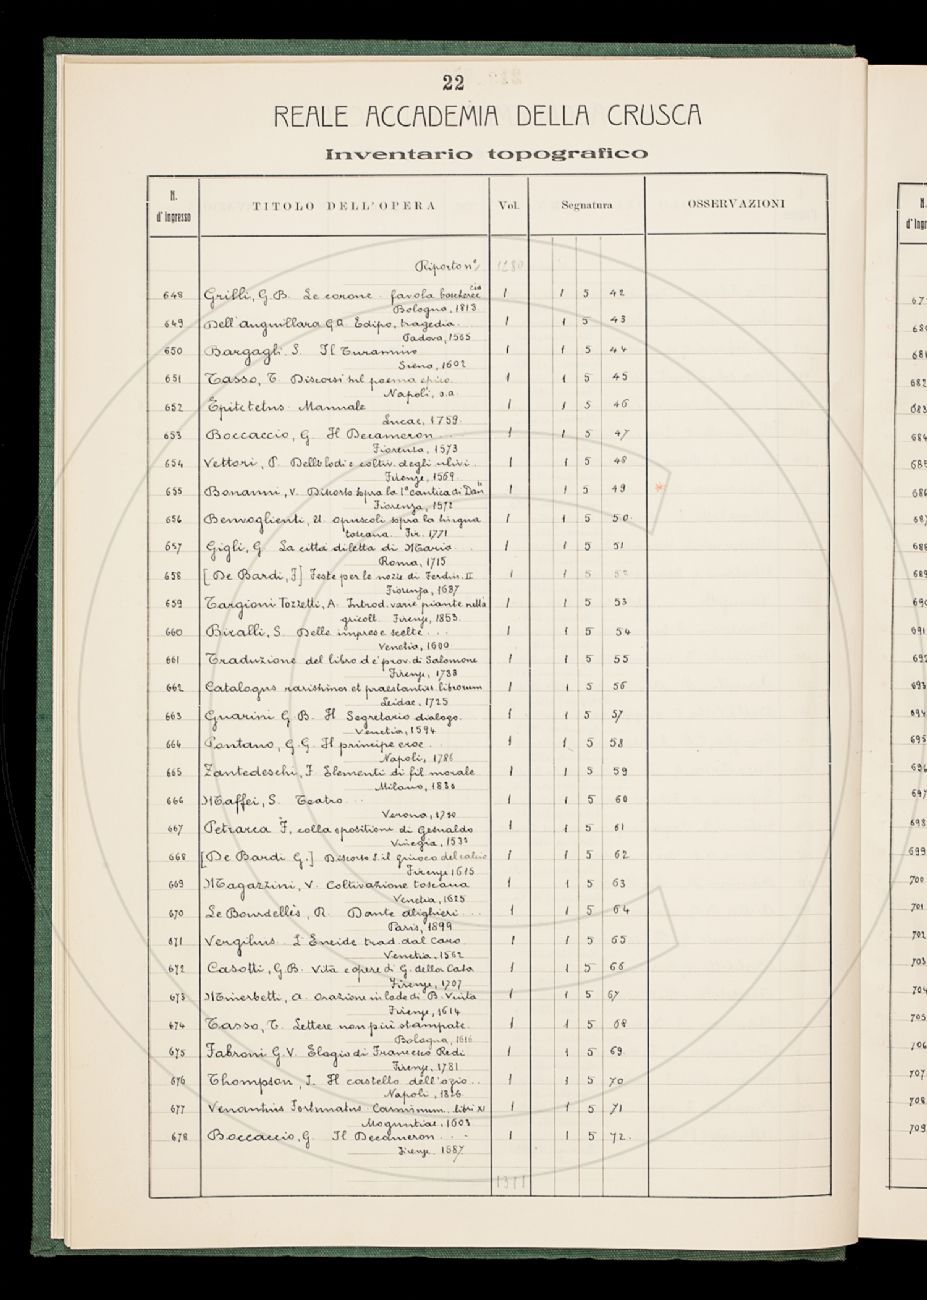 22
REALE ACCADEMIA DELLA CRUSCA
Inventario topografico
N. d'Ingresso TITOLO DELL'OPERA Vol. Segnatura OSSERVAZIONI
Riporto n° 1280
648 Grilli, G.B. Le corone. favola boscherec cia 1 1 5 42
Bologna, 1813
649 Dell'Anguillara G.A. Edipo, tragedia. 1 1 5 43
Padova, 1565
650 Bargagli. S. Il Turamino 1 1 5 44
Siena, 1602
651 Tasso, T. Discorsi sul poema epico. 1 1 5 45
Napoli, s.a.
652 Epitetetus Mannale 1 1 5 46
Lucae, 1759.
653 Boccaccio, G. Il Decameron ... 1 1 5 47
Fiorenza, 1573
654 Vettori, P. Delle lodi e coltiv. degli ulivi. 1 1 5 48
Firenze, 1569.
655 Bonanni, V. Discorso sopra la 1ª cantica di Dan 1 1 5 49 *
Fiorenza, 1572
656 Benvoglienti, U. opuscoli sopra la lingua 1 1 5 50.
toscana. Fir. 1771
657 Gigli, G. La città diletta di Maria. 1 1 5 51
Roma, 1715
658 [De Bardi, F] Feste per le nozze di Ferdin. II 1 1 5 52
Fiorenza, 1637
659 Targioni Tozzetti, A. Introd. varie piante nella 1 1 5 53
gricolt. Firenze, 1853.
660 Biralli, S. Delle imprese scelte ... 1 1 5 54
Venetia, 1600
661 Traduzione del libro de' prov. di Salomone 1 1 5 55
Firenze, 1733
662 Catalogus rarishimor et praestantiss librorum 1 1 5 56
Leidae, 1725
663 Guarini G.B. Il Segretario dialogo. 1 1 5 57
Venetia, 1594
664 Pontano, G.G. Il principe eroe. 1 1 5 58
Napoli, 1786
665 Zantedeschi, F. Elementi di fil morale 1 1 5 59
Milano,
666 Maffei, S. Teatro ... 1 1 5 60
Verona, 1730
667 Petrarca F, colla spositione di Gesualdo 1 1 5 61
Vinegia, 1533
668 [De Bardi G.] Discorso s. il giuoco del calcio 1 1 5 62
Firenze 1615
669 Magazzini, V. Coltivazione toscana 1 1 5 63
Venetia, 1625
670 Le Bourdellès, R. Dante Alighieri ... 1 1 5 64
Paris, 1899
671 Vergilius. L'Eneide trad. dal Caro 1 1 5 65
Venetia, 1562
672 Casotti, G.B. Vita e opere di G. della Casa 1 1 5 66
Firenze, 1707
673 Minerbetti, A. Orazione in lode di B. Vinta 1 1 5 67
Firenze, 1614
674 Tasso, T. Lettere non più stampate. 1 1 5 68
Bologna, 1616
675 Fabroni G.V. Elogio di Francesco Redi 1 1 5 69
Firenze, 1781
676 Thompson, J. Il castello dell'ozio .. 1 1 5 70
Napoli, 1826
677 Venantius Fortunatus. Carminum. libri XI 1 1 5 71
Moguntiae, 1603
678 Boccaccio, G. Il Decameron ... 1 1 5 72.
Firenze 1587
1311
N.
d'Ingr
67
680
681
682
683
684
685
686
687
688
689
690
691
692
693
694
695
696
697
698
699
700
701
702
703
704
705
706
707
708
709